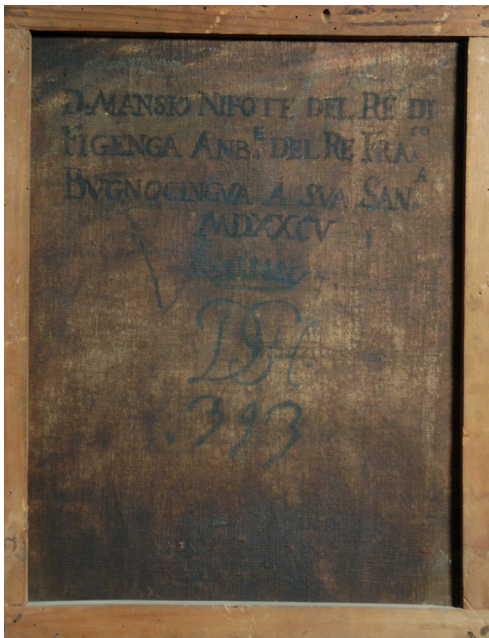 D. MANSIO NIPOTE DEL RE DI
FIGENGA ANB.E DEL RE FRA.CO
BVGNOCINGVA A SVA SAN.A
MDXXCV
DGH.
.393